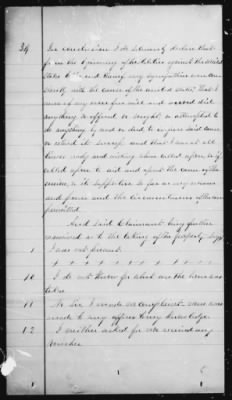 39 In conclusion I do solemnly declare that
from the beginning of hostilities against the United
States to the end thereof, my sympathies were con-
stantly with the cause of the United States; that I
never of my own free will and accord did
anything, or offered, or sought, or attempted to
do anything, by word or deed, to injure said cause
or retard its success, and that I was at all
times ready and willing when called upon, or if
called upon, to aid and assist the cause of the
Union, or its supporters, so far as my means
and power and the circumstances of the case
permitted.
And said Claimant being further
examined as to the taking of the property, says
1 I was not present.
+ + + + + + + + + +
10 I do not know for what use the same was
taken
11 No Sir, I made no complaint. None was
made to any officer to my knowledge.
12 I neither asked for nor received any
voucher